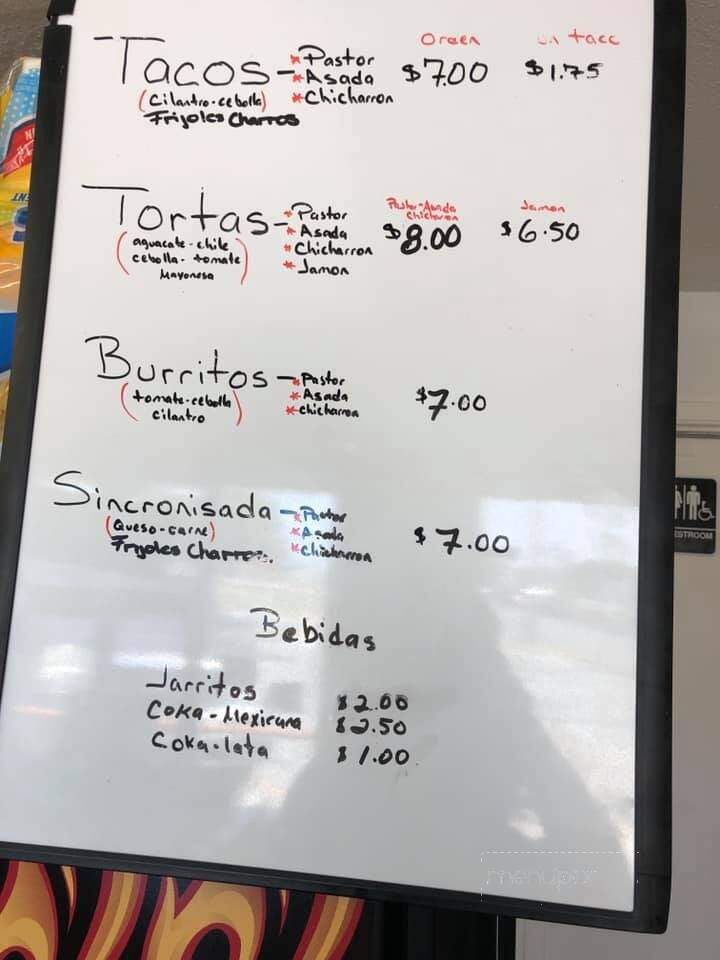 Orden un taco
Tacos - *Pastor $7.00 $1.75
*Asada
(Cilantro-cebolla) *Chicharron
Frijoles Charros
Pastor-Asada Jamon
Chicharron
Tortas - *Pastor $8.00 $6.50
*Asada
(aguacate-chile *Chicharron
cebolla-tomate *Jamon
Mayonesa)
Burritos - *Pastor $7.00
*Asada
(tomate-cebolla *chicharron
cilantro)
Sincronisada - *Pastor $7.00
(Queso-carne) *Asada
Frijoles Charros. *Chicharron
Bebidas
Jarritos $2.00
Coka-Mexicana $2.50
Coka-lata $1.00
RESTROOM
menupix